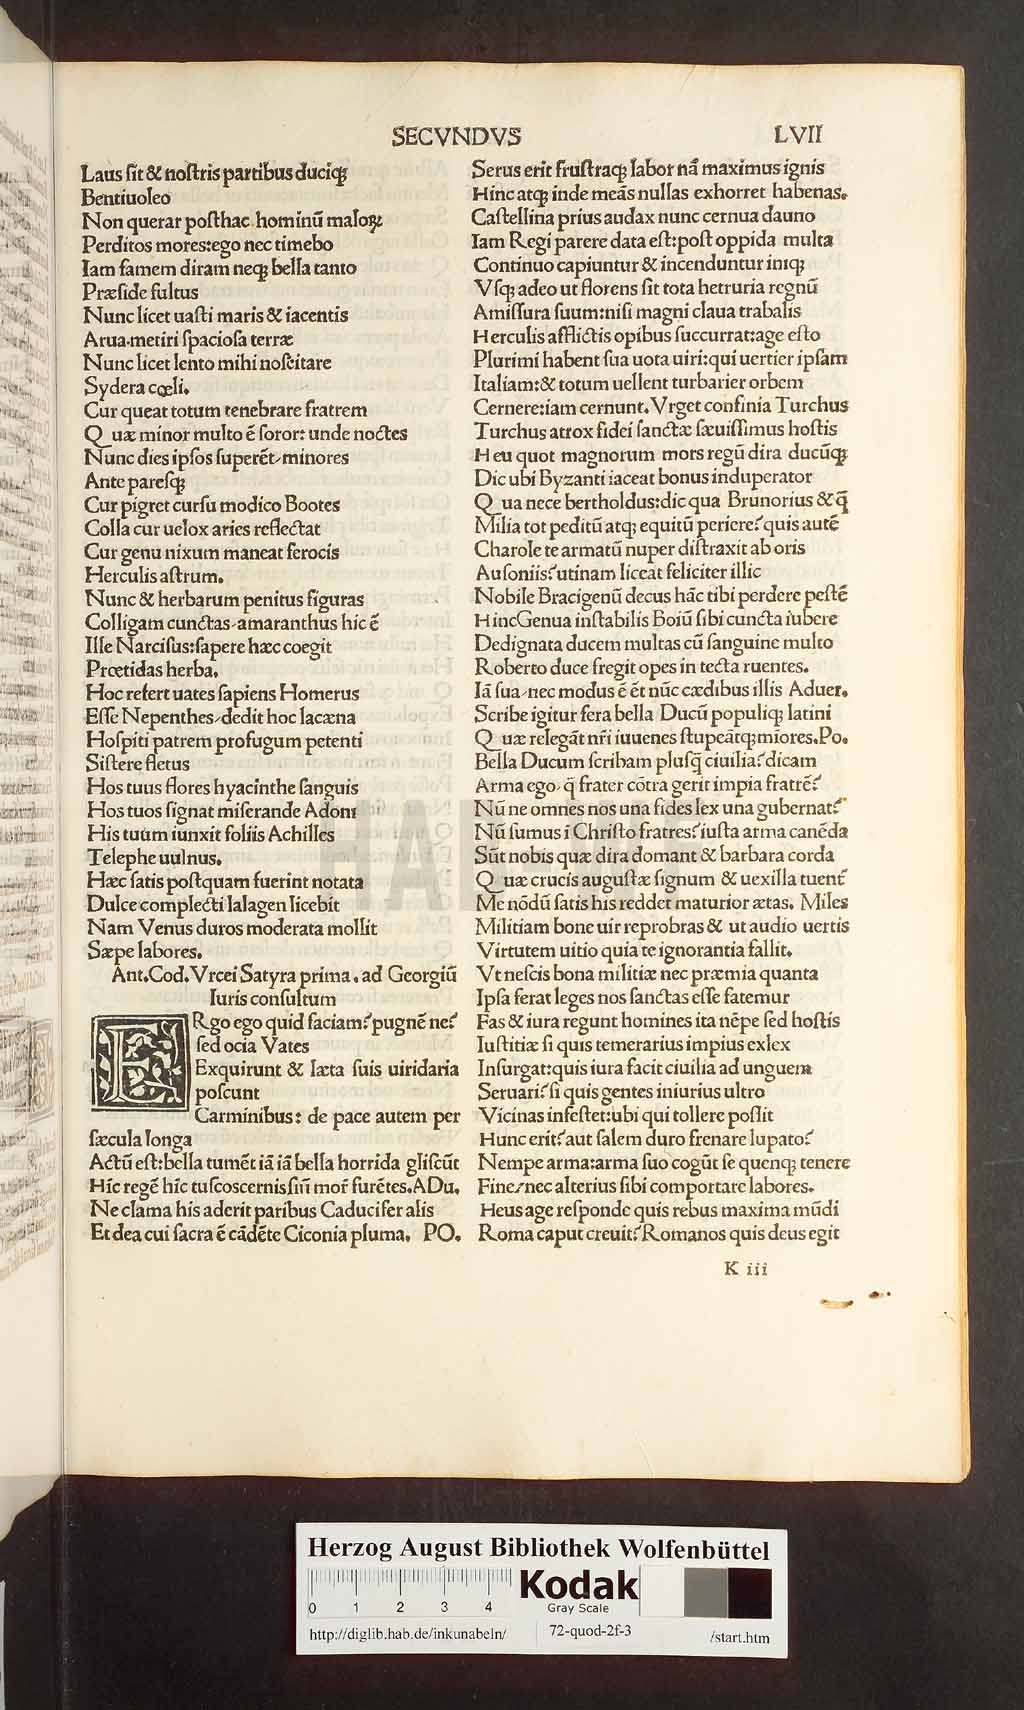 SECVNDVS
LVII
Laus ſit & noſtris partibus duciqꝫ
Bentiuoleo
Non querar poſthac hominū maloꝝ
Perditos mores:ego nec timebo
Iam famem diram neqꝫ bella tanto
Præſide fultus
Nunc licet uaſti maris & iacentis
Arua metiri ſpacioſa terræ
Nunc licet lento mihi noſcitare
Sydera cœli.
Cur queat totum tenebrare fratrem
Quæ minor multo ē ſoror: unde noctes
Nunc dies ipſos ſuperēt⸝minores
Ante pareſqꝫ
Cur pigret curſu modico Bootes
Colla cur uelox aries reflectat
Cur genu nixum maneat ferocis
Herculis aſtrum.
Nunc & herbarum penitus figuras
Colligam cunctas⸝amaranthus hic ē
Ille Narciſus:ſapere hæc coegit
Prœtidas herba.
Hoc refert uates ſapiens Homerus
Eſſe Nepenthes⸝dedit hoc lacæna
Hoſpiti patrem profugum petenti
Siſtere fletus
Hos tuus flores hyacinthe ſanguis
Hos tuos ſignat miſerande Adoni
His tuum iunxit foliis Achilles
Telephe uulnus.
Hæc ſatis poſtquam fuerint notata
Dulce complecti lalagen licebit
Nam Venus duros moderata mollit
Sæpe labores.
Ant.Cod.Vrcei Satyra prima. ad Georgiū
Iuris conſultum
ERgo ego quid faciam? pugnē ne?
ſed ocia Vates
Exquirunt & læta ſuis uiridaria
poſcunt
Carminibus: de pace autem per
ſæcula longa
Actū eſt:bella tumēt iā iā bella horrida gliſcūt
Hīc regē hīc tuſcoscerniſ ſiū mor̄ furētes.ADu.
Ne clama his aderit paribus Caducifer alis
Et dea cui ſacra ē cādēte Ciconia pluma. PO.
Serus erit fruſtraqꝫ labor nā maximus ignis
Hinc atqꝫ inde meās nullas exhorret habenas.
Caſtellina prius audax nunc cernua dauno
Iam Regi parere data eſt:poſt oppida multa
Continuo capiuntur & incenduntur iniqꝫ
Vſqꝫ adeo ut florens ſit tota hetruria regnū
Amiſſura ſuum:niſi magni claua trabalis
Herculis afflictis opibus ſuccurrat:age eſto
Plurimi habent ſua uota uiri:qui uertier ipſam
Italiam:& totum uellent turbarier orbem
Cernere:iam cernunt. Vrget confinia Turchus
Turchus atrox fidei ſanctæ ſæuiſſimus hoſtis
Heu quot magnorum mors regū dira ducūqꝫ
Dic ubi Byzanti iaceat bonus induperator
Qua nece bertholdus:dic qua Brunorius & q̄
Milia tot peditū atqꝫ equitū periere? quis autē
Charole te armatū nuper diſtraxit ab oris
Auſoniis? utinam liceat feliciter illic
Nobile Bracigenū decus hāc tibi perdere peſtē
HincGenua inſtabilis Boiū ſibi cuncta iubere
Dedignata ducem multas cū ſanguine multo
Roberto duce fregit opes in tecta ruentes.
Iā ſua⸝nec modus ē ēt nūc cædibus illis Aduer.
Scribe igitur fera bella Ducū populiqꝫ latini
Quæ relegāt nr̄i iuuenes ſtupeātqꝫ miores.Po.
Bella Ducum ſcribam pluſq̄ ciuilia? dicam
Arma ego⸝q̄ frater cōtra gerit impia fratrē?
Nū ne omnes nos una fides lex una gubernat?
Nū ſumus i Chriſto fratres? iuſta arma canēda
Sūt nobis quæ dira domant & barbara corda
Quæ crucis auguſtæ ſignum & uexilla tuent̄
Me nōdū ſatis his reddet maturior ætas. Miles
Militiam bone uir reprobras & ut audio uertis
Virtutem uitio quia te ignorantia fallit.
Vt neſcis bona militiæ nec præmia quanta
Ipſa ferat leges nos ſanctas eſſe fatemur
Fas & iura regunt homines ita nēpe ſed hoſtis
Iuſtitiæ ſi quis temerarius impius exlex
Inſurgat:quis iura facit ciuilia ad unguem
Seruari? ſi quis gentes iniurius ultro
Vicinas infeſtet:ubi qui tollere poſſit
Hunc erit? aut ſalem duro frenare lupato?
Nempe arma:arma ſuo cogūt ſe quenqꝫ tenere
Fine⸝nec alterius ſibi comportare labores.
Heus age reſponde quis rebus maxima mūdi
Roma caput creuit? Romanos quis deus egit
K iii
HAB WF
Herzog August Bibliothek Wolfenbüttel
0 1 2 3 4
Kodak
Gray Scale
http://diglib.hab.de/inkunabeln/
72-quod-2f-3
/start.htm